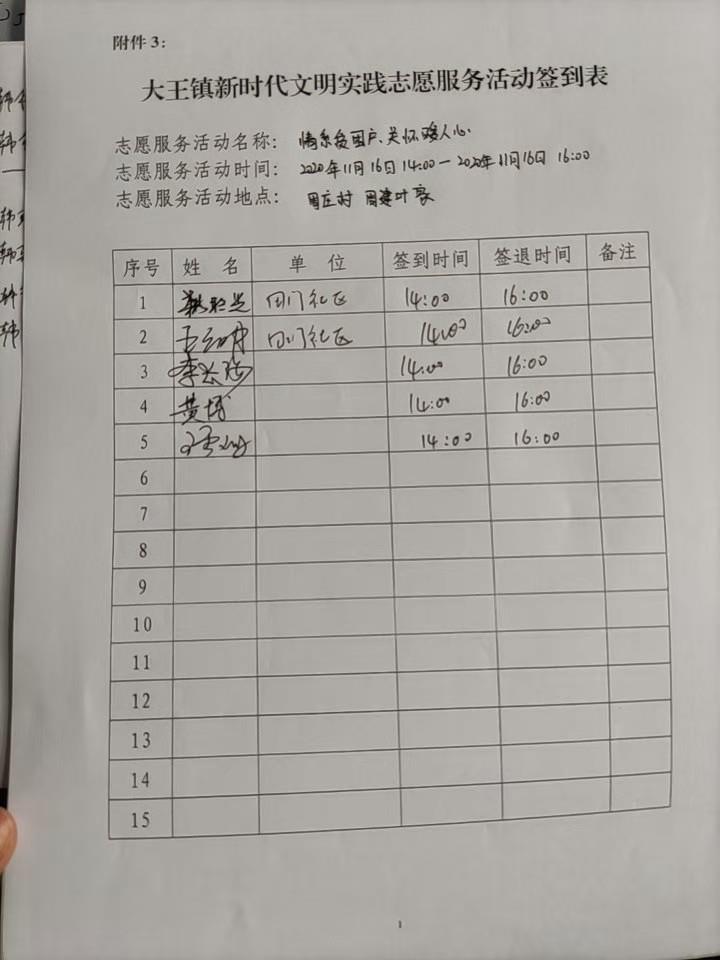 附件 3：
大王镇新时代文明实践志愿服务活动签到表
志愿服务活动名称： 情系贫困户、关怀暖人心.
志愿服务活动时间： 2020年11月16日 14:00 — 2020年11月16日 16:00
志愿服务活动地点： 周庄村 周建叶家
序号 姓 名 单 位 签到时间 签退时间 备注
1 社区 14:00 16:00
2 社区 14:00 16:00
3 14:00 16:00
4 黄博 14:00 16:00
5 14:00 16:00
6
7
8
9
10
11
12
13
14
15
1